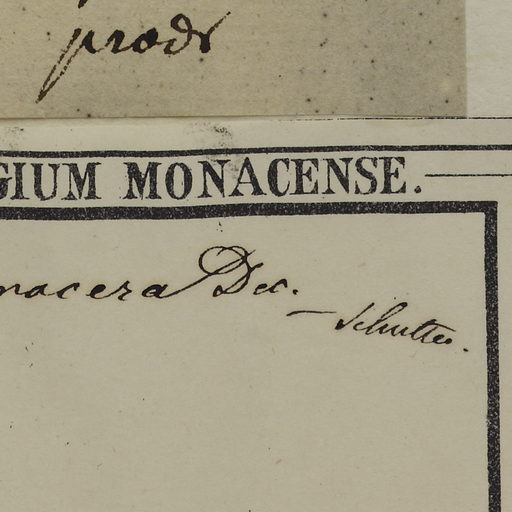 prodr
GIUM MONACENSE.
nacera Dec.
— Schultes.